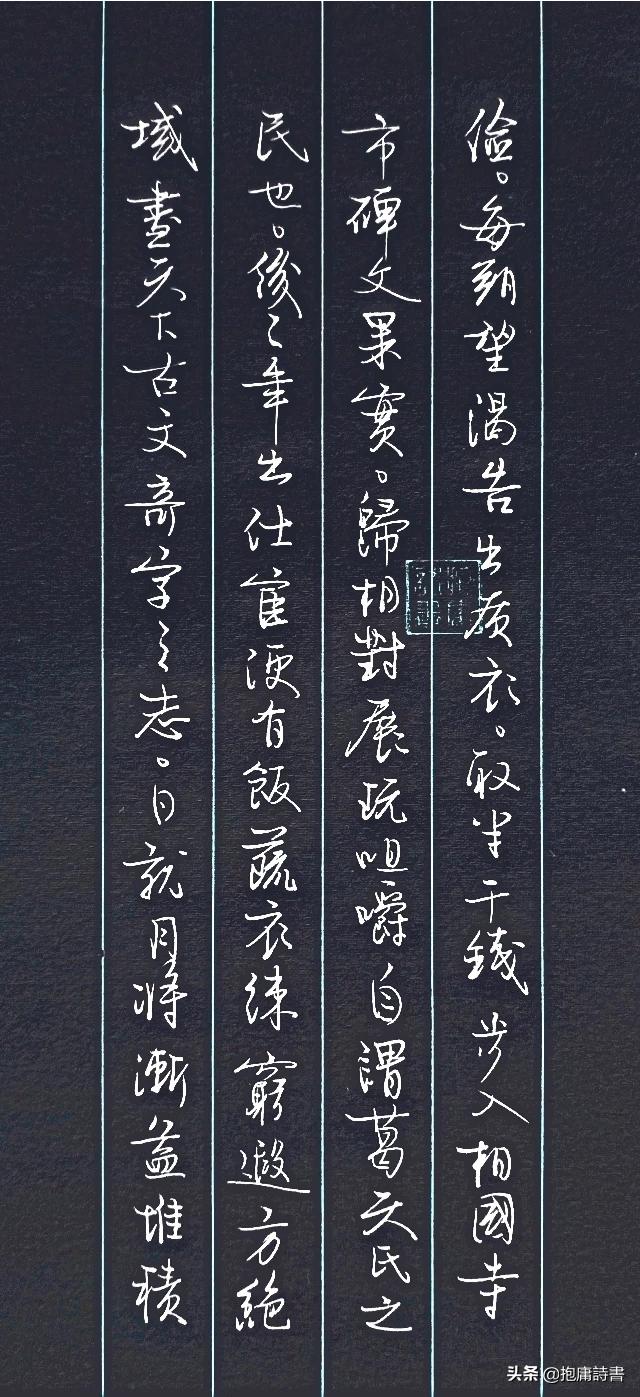 儉。每朔望谒告出质衣。取半千錢步入相國寺
市碑文果實。歸相對展玩咀嚼自謂葛天氏之
民也。後二年出仕宦便有飯蔬衣練窮遐方絕
域盡天下古文奇字之志。日就月將漸益堆積
头条@抱庸詩書